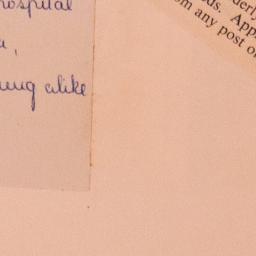 hospital
alike
derly
ds. App
om any post o